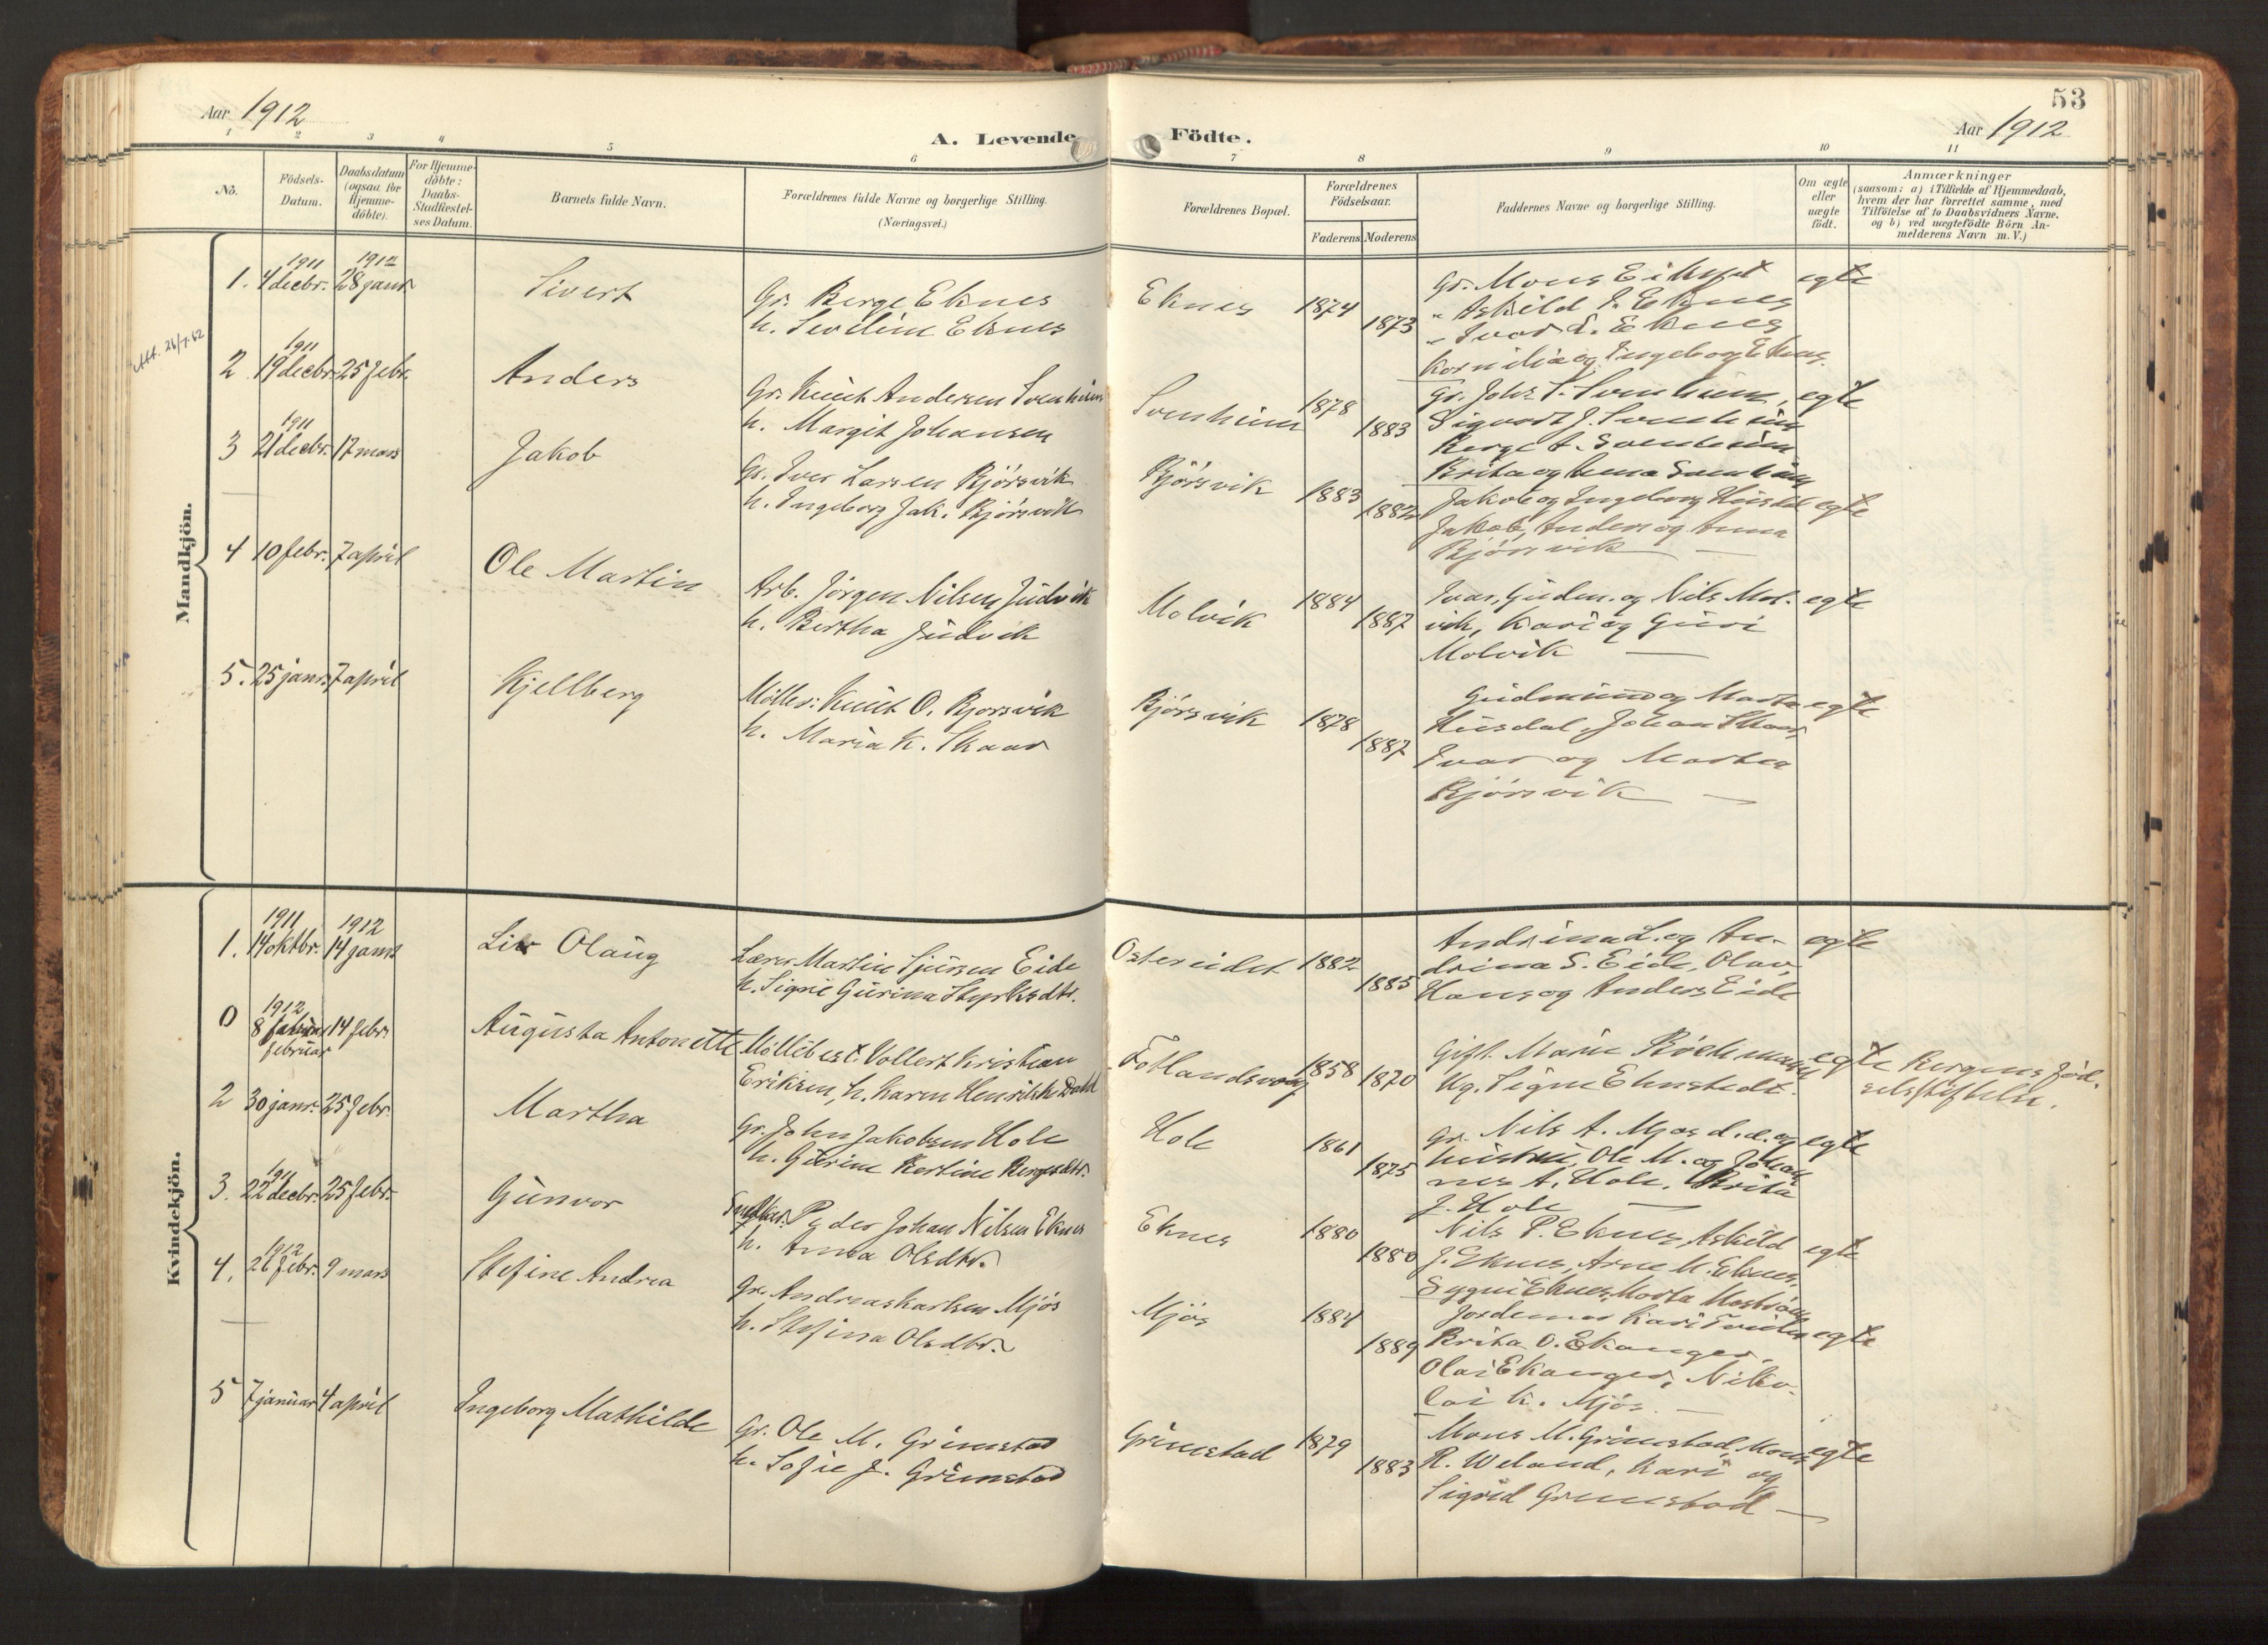 53
Aar 1912
A. Levende Födte.
Aar 1912
1 2 3 4 5 6 7 8 9 10 11
No.
Födsels-
Datum.
Daabsdatum
(ogsaa for
Hjemme-
döbte).
For Hjemme-
döbte:
Daabs-
Stadfæstel-
ses Datum.
Barnets fulde Navn.
Forældrenes fulde Navne og borgerlige Stilling.
(Næringsvei.)
Forældrenes Bopæl.
Forældrenes
Födselsaar.
Faderens Moderens
Faddernes Navne og borgerlige Stilling.
Om ægte
eller
uægte
födt.
Anmærkninger
(saasom: a) i Tilfælde af Hjemmedaab,
hvem der har forrettet samme, med
Tilföielse af to Daabsvidners Navne.
og b) ved uægtefödte Börn An-
melderens Navn m. V.)
Mandkjön.
1911 1912
1. 4 decbr. 28 janr Sivert
Gr. Berge Eknes
h. Seveline Eknes
Eknes 1874 1873
Gr. Mons Eikset
" Askild J. Eknes
" Ivar L. Eknes
Kornilia og Ingeborg Eknes
egte
Att. 26/7.62
1911
2 19 decbr. 25 febr. Anders
Gr. Knut Andersen Svenheim
h. Margit Johansen
Svenheim 1878 1883
Gr. Johs S. Svenheim,
Sigvart J. Svenheim
Berge A. Svenheim
Brita og Anna Svenheim
egte
1911
3 21 decbr. 17 mars Jakob
Gr. Iver Larsen Bjørsvik
h. Ingeborg Jak. Bjørsvik
Bjørsvik 1883 1882
Jakob og Ingeborg Husdal
Jakob, Anders og Anna
Bjørsvik
egte
4 10 febr. 7 april Ole Martin
Arb. Jörgen Nilsen Judvik
h. Bertha Judvik
Molvik 1884 1887
Ivar, Gudm. og Nils Mol-
vik, Kari og Guri
Molvik
egte
5. 25 janr. 7 april Kjellberg
Möller. Knut O. Bjorsvik
h. Maria K. Skaar
Bjørsvik 1878 1887
Gudmund og Marta
Husdal, Johan Skaar,
Ivar og Marta
Bjørsvik
egte
Kvindekjön.
1911 1912
1. 14 oktbr. 14 janr Liv Olaug
Lærer Martin Sjursen Eide
h. Signe Gurina Styrksdtr.
Ostereidet 1882 1885
Andrina L. og An-
drina S. Eide, Olav,
Hans og Anders Eide
egte
1912
0 8 februar 14 febr. Augusta Antonette
Möllebest. Vollert Kristian
Eriksen, h. Karen Henrikke Dahl
Fotlandsvaag 1858 1870
Gift. Marie Böckmann
Kg. Signe Ehnstedt.
egte Bergens fød-
selsstiftelse.
2 30 janr. 25 febr. Martha
Gr. John Jakobsen Hole
h. Gurine Kertine Bergesdtr.
Hole 1861 1875
Gr. Nils A. Mjøs d.e. og
hustru, Ole M. og Johan
nes A. Hole, Brita
J. Hole
egte
1911
3. 22 decbr. 25 febr. Gunvor
Peder Johan Nilsen Eknes
h. Anna Olsdtr.
Eknes 1880 1880
Nils P. Eknes, Askild
J. Eknes, Arne M. Eknes,
Eknes, Marta
egte
1912
4. 26 febr. 9 mars Stefine Andrea
Gr. Andreas Karlsen Mjøs
h. Stefina Olsdtr.
Mjøs 1884 1889
Jordemor Kari
Brita O. Ekanger,
Olai Ekanger, Niko-
lai K. Mjøs.
egte
5 7 januar 4 april Ingeborg Mathilde
Gr. Ole M. Grimstad
h. Sofie J. Grimstad
Grimstad 1879 1883
Mons M. Grimstad, Mons
R. Weland, Kari og
Sigrid Grimstad
egte